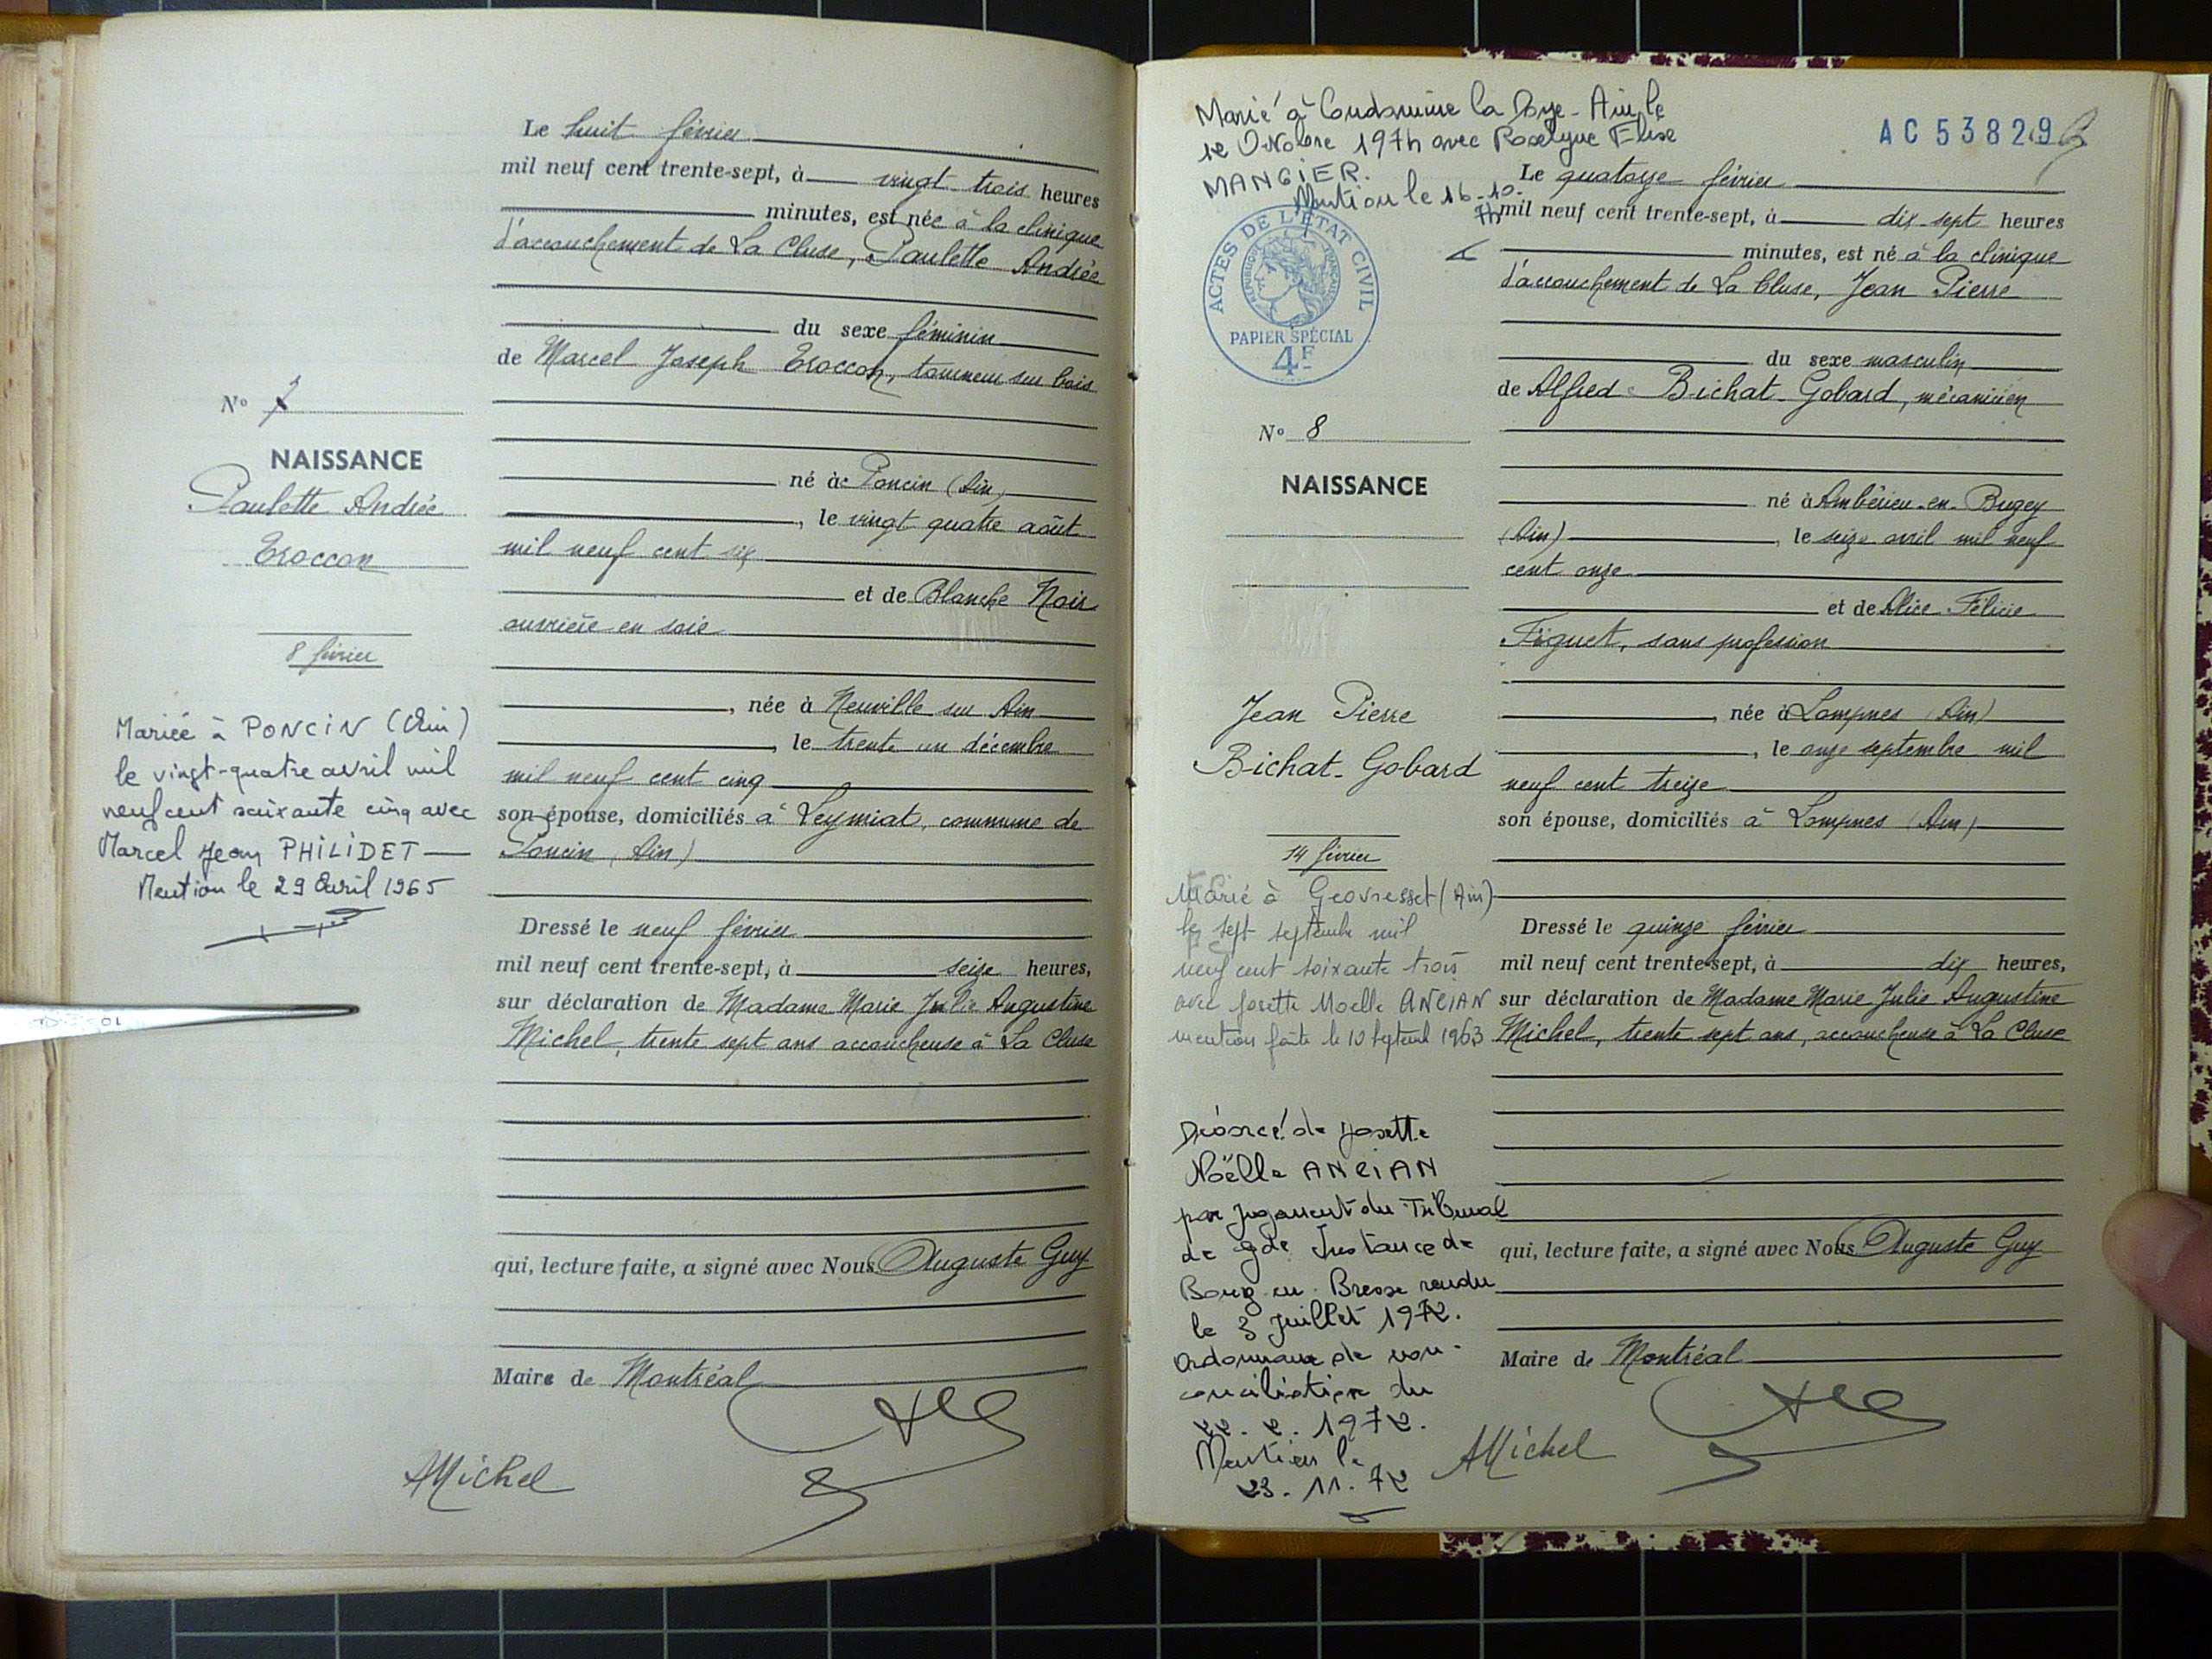 Le huit février
mil neuf cent trente-sept, à vingt trois heures
minutes, est née à la clinique
d'accouchement de La Cluse, Paulette Andrée
du sexe féminin
de Marcel Joseph Eroccon, tourneur sur bois
né à Poncin (Ain)
, le vingt quatre août
mil neuf cent six
et de Blanche Noir
ouvrière en soie
, née à Neuville sur Ain
, le trente un décembre
mil neuf cent cinq
son épouse, domiciliés à Leymiat, commune de
Poncin (Ain)
Dressé le neuf février
mil neuf cent trente-sept, à seize heures,
sur déclaration de Madame Marie Julie Augustine
Michel, trente sept ans accoucheuse à La Cluse
qui, lecture faite, a signé avec Nous Auguste Guy
Maire de Montréal
AMichel
N° 7
NAISSANCE
Paulette Andrée
Eroccon
8 février
Mariée à PONCIN (Ain)
le vingt-quatre avril mil
neuf cent soixante cinq avec
Marcel Jean PHILIDET
Mention le 29 Avril 1965
Marié à Condamine la Doye - Ain le
12 Octobre 1974 avec Roselyne Elise
MANGIER.
Mention le 16-10-
74
AC 53829
ACTES DE L'ÉTAT CIVIL
RÉPUBLIQUE FRANÇAISE
PAPIER SPÉCIAL
4F
N° 8
NAISSANCE
Jean Pierre
Bichat-Gobard
14 février
Marié à Geovresset (Ain)
le sept septembre mil
neuf cent soixante trois
avec Josette Noëlle ANCIAN
mention faite le 10 septemb 1963
Divorcé de Josette
Noëlle ANCIAN
par jugement du Tribunal
de gde Instance de
Bourg en Bresse rendu
le 3 Juillet 1972.
Ordonnance de non-
conciliation du
22. 2. 1972.
Mention le
23. 11. 72
Le quatorze février
mil neuf cent trente-sept, à dix-sept heures
minutes, est né à la clinique
d'accouchement de La Cluse, Jean Pierre
du sexe masculin
de Alfred Bichat-Gobard, mécanicien
né à Ambérieu-en-Bugey
(Ain), le seize avril mil neuf
cent onze
et de Alice Félicie
Figuet, sans profession
, née à Lompnes (Ain)
, le onze septembre mil
neuf cent treize
son épouse, domiciliés à Lompnes (Ain)
Dressé le quinze février
mil neuf cent trente-sept, à dix heures,
sur déclaration de Madame Marie Julie Augustine
Michel, trente sept ans, accoucheuse à La Cluse
qui, lecture faite, a signé avec Nous Auguste Guy
Maire de Montréal
AMichel